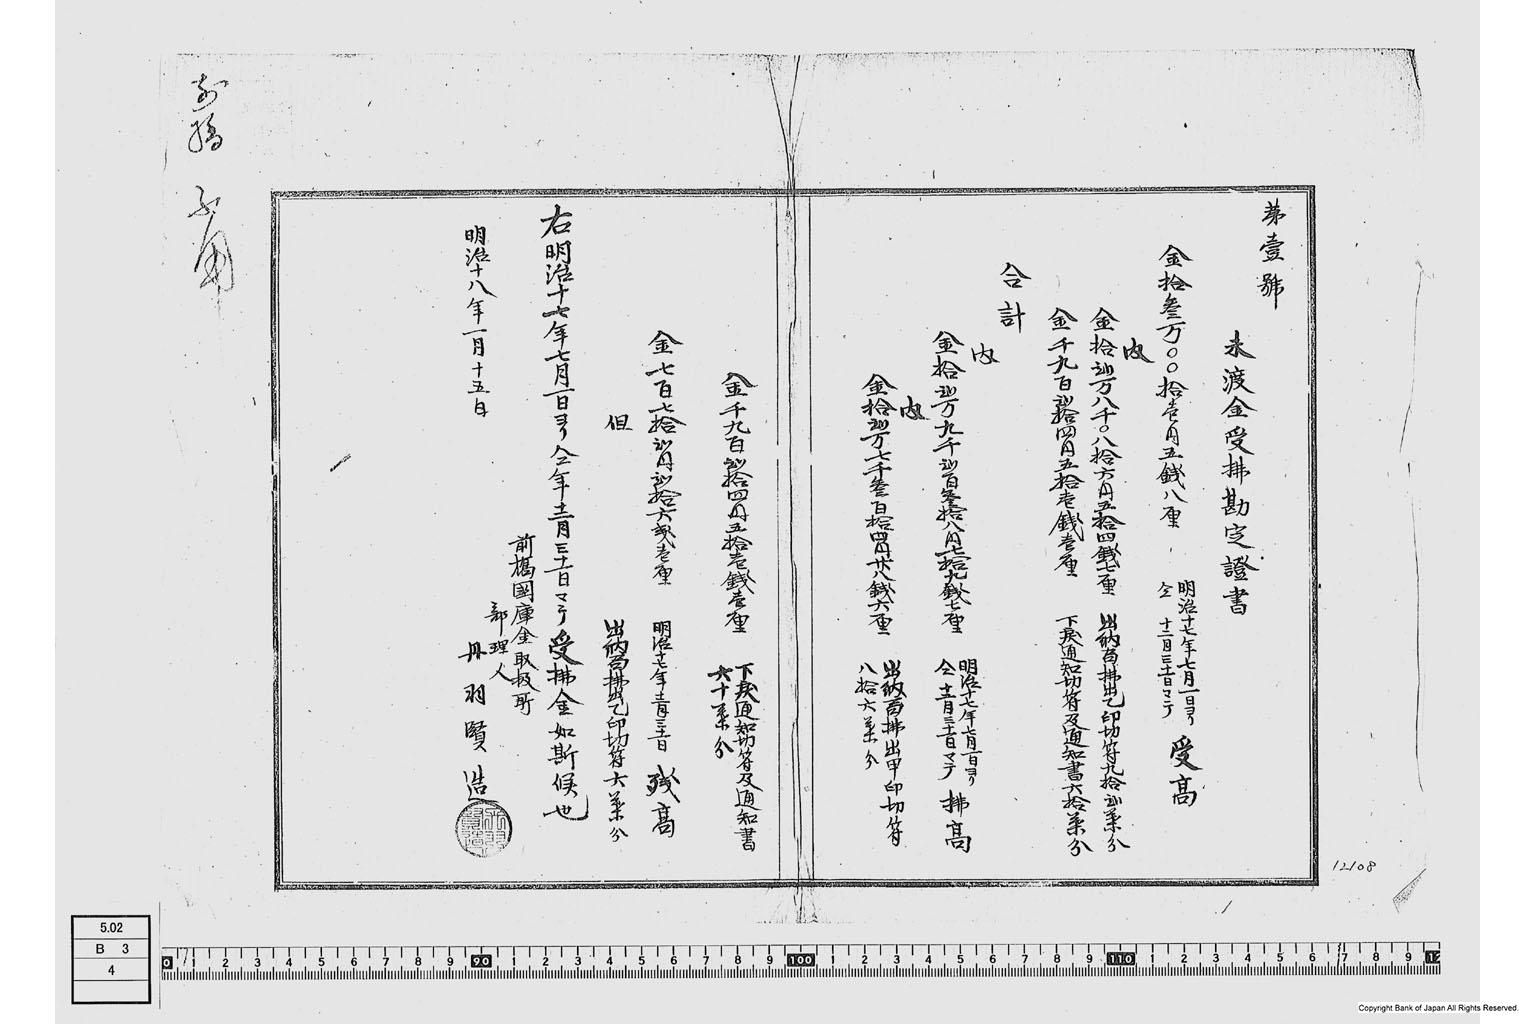 第壹號
未渡金受拂勘定證書
金拾叁万〇〇拾壱円五銭八厘
明治十七年七月一日ヨリ
仝十二月三十一日マテ
受高
内
金拾弐万八千〇八拾六円五拾四銭七厘
出納局拂出乙印切符九拾弐葉分
金千九百弐拾四円五拾壱銭壱厘
下戻通知切符及通知書六拾葉分
合計
内
金拾弐万九千弐百叁拾八円七拾九銭七厘
明治十七年七月一日ヨリ
仝十二月三十一日マテ
拂高
内
金拾弐万七千叁百拾四円廿八銭六厘
出納局拂出甲印切符
八拾六葉分
金千九百弐拾四円五拾壱銭壱厘
下戻通知切符及通知書
六十葉分
金七百七拾弐円弐拾六銭壱厘
明治十七年十二月三十一日
残高
但
出納局拂出乙印切符六葉分
右明治十七年七月一日ヨリ仝年十二月三十一日マテ受拂金如斯候也
前橋國庫金取扱所
部理人
丹羽賢造
明治十八年一月十五日
前橋
12108
5.02
B 3
4
0 1 2 3 4 5 6 7 8 9 90 1 2 3 4 5 6 7 8 9 100 1 2 3 4 5 6 7 8 9 110 1 2 3 4 5 6 7 8 9 12
Copyright Bank of Japan All Rights Reserved.